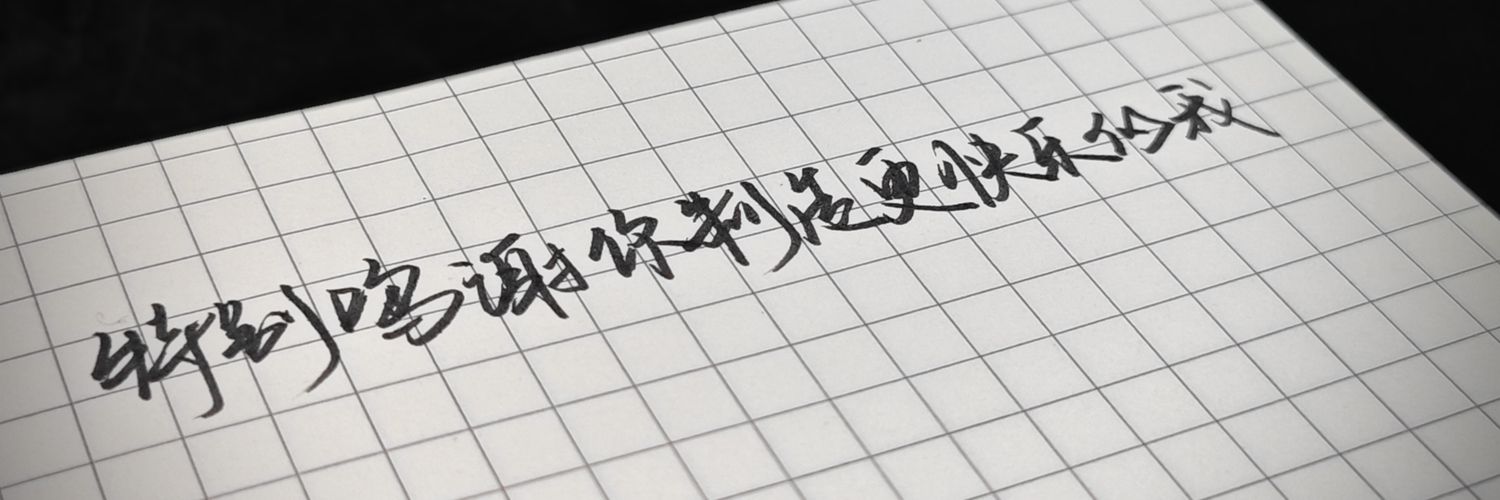 特别鸣谢你制造更快乐的我